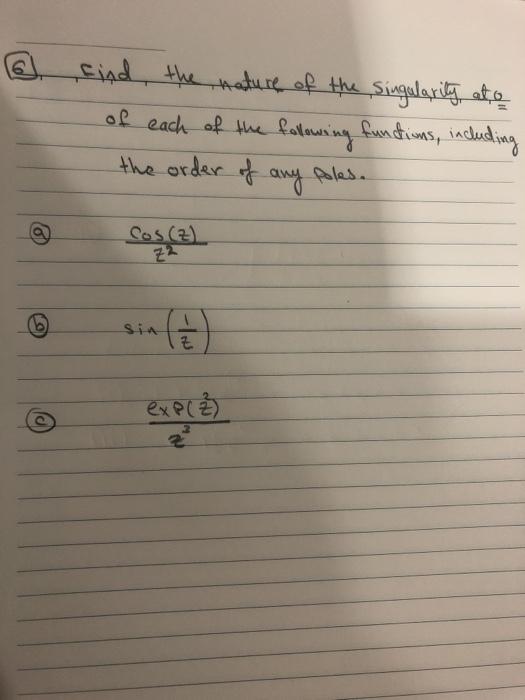 6. Find the nature of the singularity at 0
of each of the following functions, including
the order of any poles.
a cos(z)/z²
b sin(1/z)
c exp(z²)/z³